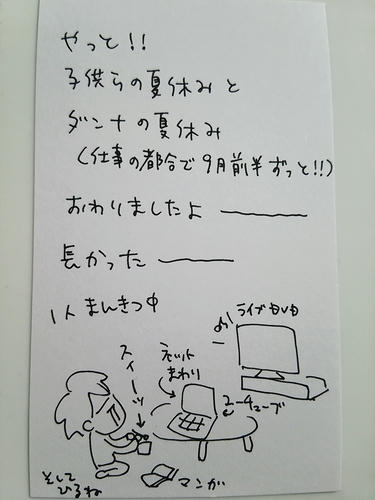 やっと!!
子供らの夏休みと
ダンナの夏休み
(仕事の都合で9月前半ずっと!!)
おわりましたよ〜
長かった〜
1人まんきつ中
ライブDVD
スイーツ
ネット
まわり
ユーチューブ
マンガ
そして
ひるね